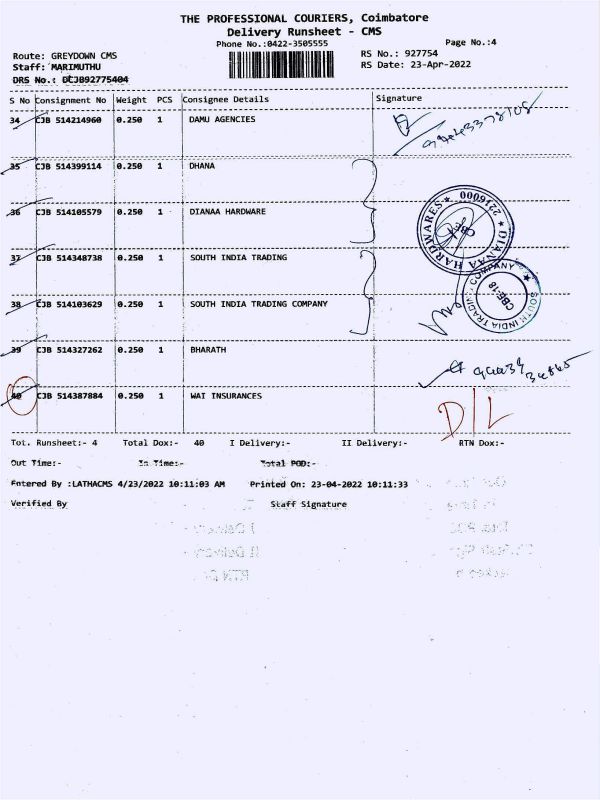 THE PROFESSIONAL COURIERS, Coimbatore
Delivery Runsheet - CMS
Phone No.:0422-3505555
Page No.:4
Route: GREYDOWN CMS
RS No.: 927754
Staff: MARIMUTHU
RS Date: 23-Apr-2022
DRS No.: DCJB92775404
S No Consignment No Weight PCS Consignee Details Signature
34 CJB 514214960 0.250 1 DAMU AGENCIES
35 CJB 514399114 0.250 1 DHANA
36 CJB 514105579 0.250 1 DIANAA HARDWARE
DIANAA HARDWARES 2216000
37 CJB 514348738 0.250 1 SOUTH INDIA TRADING
SOUTH INDIA TRADING COMPANY CBE-18
38 CJB 514103629 0.250 1 SOUTH INDIA TRADING COMPANY
39 CJB 514327262 0.250 1 BHARATH
40 CJB 514387884 0.250 1 WAI INSURANCES D/L
Tot. Runsheet:- 4 Total Dox:- 40 I Delivery:- II Delivery:- RTN Dox:-
Out Time:- In Time:- Total POD:-
Entered By :LATHACMS 4/23/2022 10:11:03 AM Printed On: 23-04-2022 10:11:33
Verified By Staff Signature